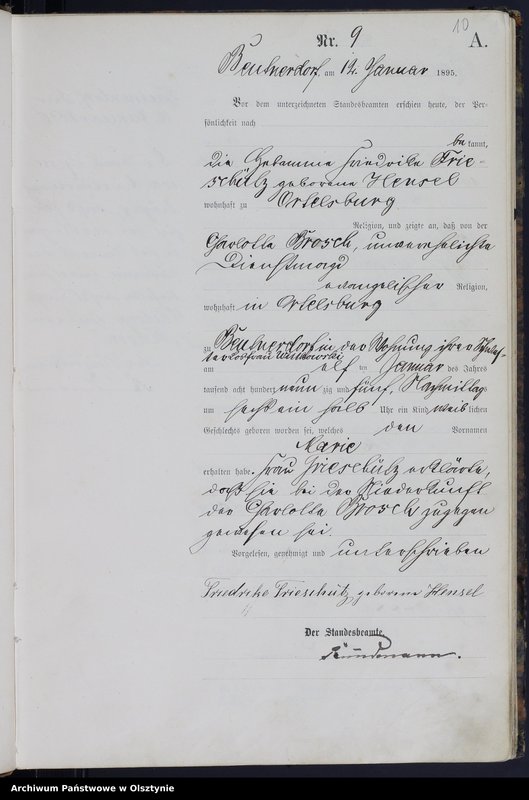 10
Nr. 9
A.
Beutnerdorf, am 12. Januar 1895.
Vor dem unterzeichneten Standesbeamten erschien heute, der Per-
sönlichkeit nach
be kannt,
die Hebamme Friedrike Frie-
schütz geborene Hensel
wohnhaft zu Ortelsburg
Religion, und zeigte an, daß von der
Charlotte Brosch, unverehelichte
Dienstmagd
evangelischer Religion,
wohnhaft in Ortelsburg
zu Beutnerdorf in der Wohnung ihrer
am elf ten Januar des Jahres
tausend acht hundert neun zig und fünf, Nachmittag
um sechs ein halb Uhr ein Kind weib lichen
Geschlechts geboren worden sei, welches den Vornamen
Marie
erhalten habe. Frau Frieschütz erklärte,
daß sie bei der Niederkunft
der Charlotte Brosch zugegen
gewesen sei.
Vorgelesen, genehmigt und unterschrieben
Friedrike Frieschütz geborene Hensel
Der Standesbeamte.
Archiwum Państwowe w Olsztynie